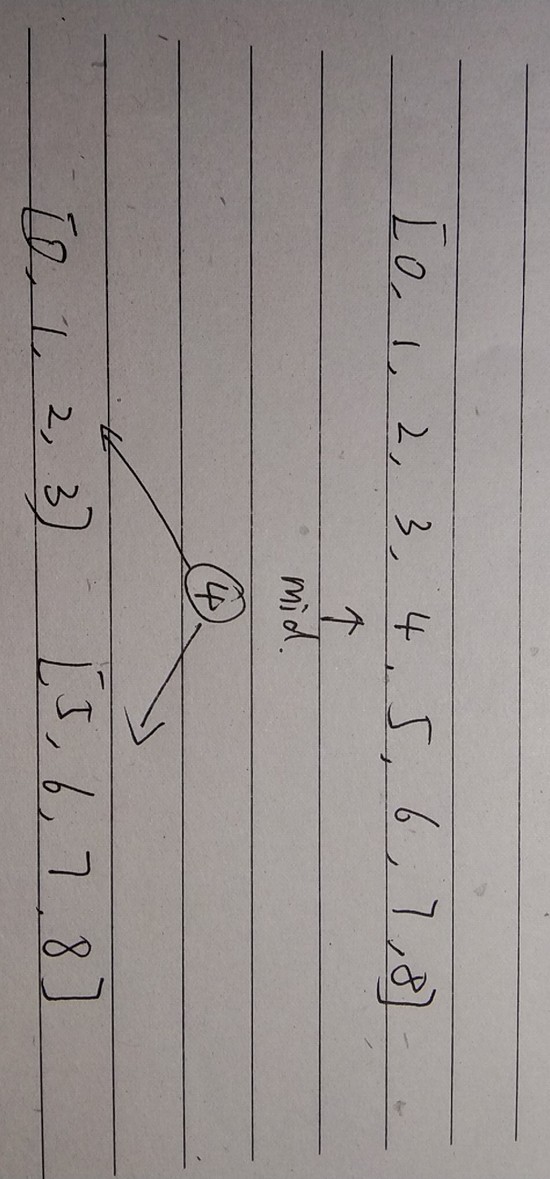 [0, 1, 2, 3, 4, 5, 6, 7, 8]
↑
mid.
4
[0, 1, 2, 3] [5, 6, 7, 8]